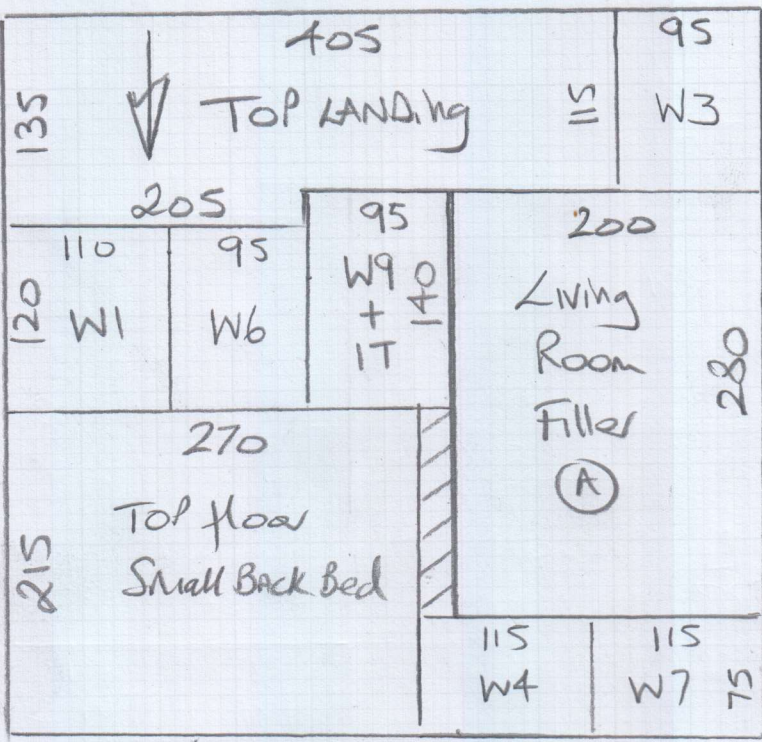 405
135
TOP LANDing
115
95
W3
205
110
W1
120
95
W6
95
W9
+
1T
140
200
Living
Room
Filler
A
280
270
Top floor
Small Back Bed
215
115
W4
115
W7
75